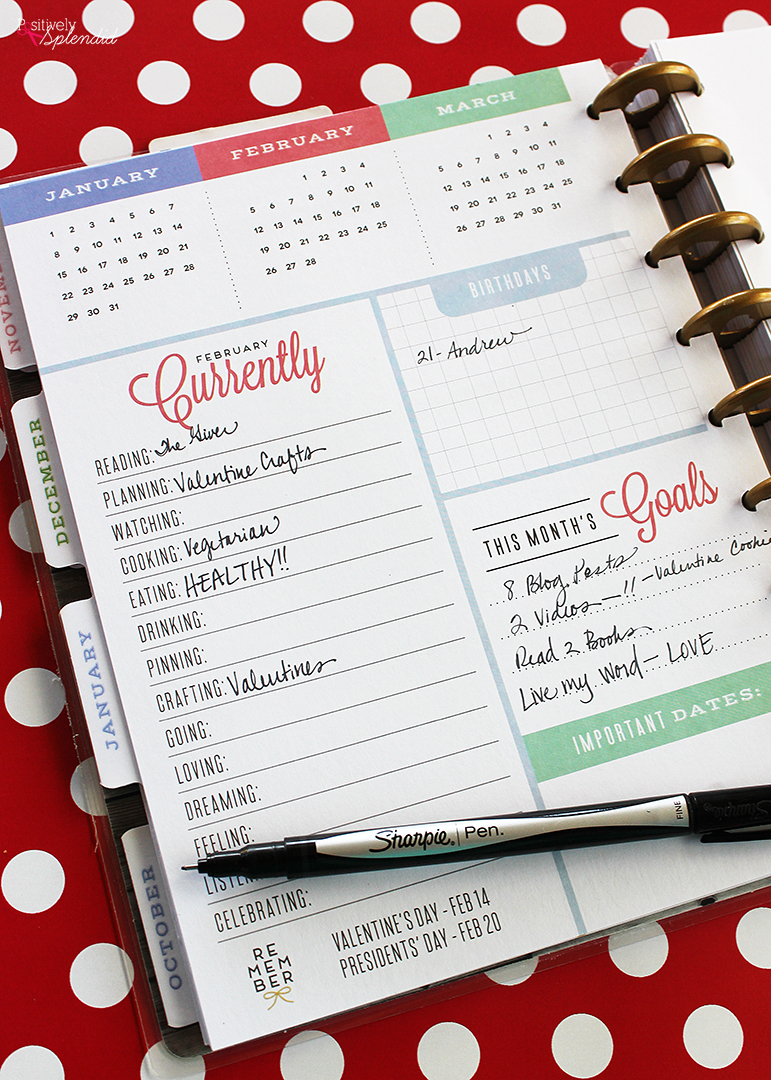 Positively
Splendid
JANUARY
1 2 3 4 5 6 7
8 9 10 11 12 13 14
15 16 17 18 19 20 21
22 23 24 25 26 27 28
29 30 31
FEBRUARY
1 2 3 4
5 6 7 8 9 10 11
12 13 14 15 16 17 18
19 20 21 22 23 24 25
26 27 28
MARCH
1 2 3 4
5 6 7 8 9 10 11
12 13 14 15 16 17 18
19 20 21 22 23 24 25
26 27 28 29 30 31
FEBRUARY
Currently
READING: The Giver
PLANNING: Valentine Crafts
WATCHING:
COOKING: Vegetarian
EATING: HEALTHY!!
DRINKING:
PINNING:
CRAFTING: Valentines
GOING:
LOVING:
DREAMING:
FEELING:
CELEBRATING:
REMEMBER
VALENTINE'S DAY - FEB 14
PRESIDENTS' DAY - FEB 20
BIRTHDAYS
21 - Andrew
THIS MONTH'S Goals
8 Blog Posts
2 Videos—!! - Valentine
Read 2 Books
Live my Word - LOVE
IMPORTANT DATES:
Sharpie Pen. FINE
NOVEMBER
DECEMBER
JANUARY
OCTOBER